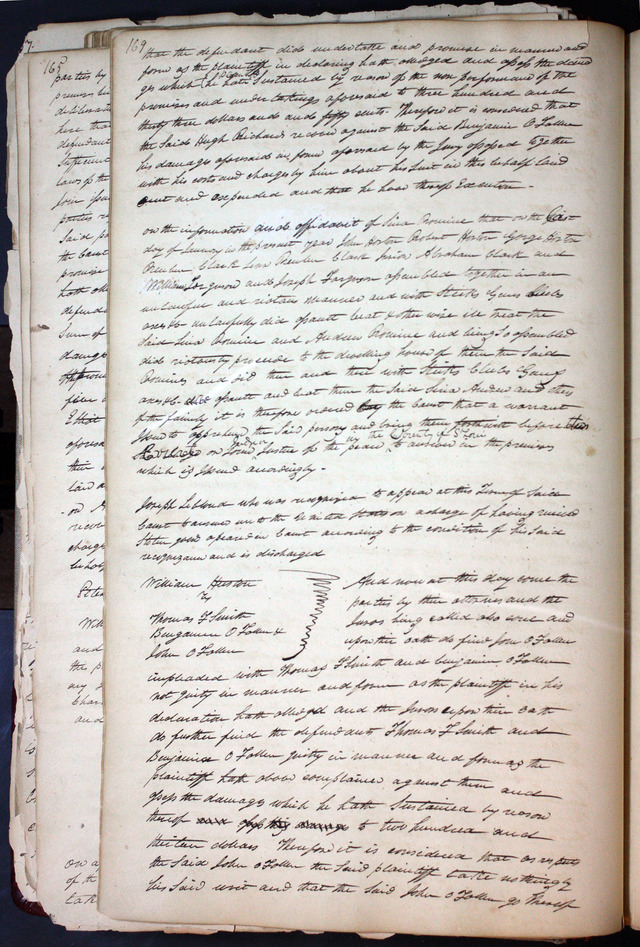 169
that the defendant did undertake and promise in manner and
form as the plaintiff in declaring hath alledged and assess the dama
ges which he hath sustained by reason of the non performance of the
promises and undertakings aforesaid to three hundred and
thirty three dollars and and fifty cents. Therefore it is considered that
the said Hugh Richards recover against the said Benjamin O Fallon
his damages aforesaid in form aforesaid by the Jury assessed together
with his costs and charges by him about his suit in this behalf laid
out and expended and that he have thereof Execution -
on the information and affidavit of Sina Romine that on the
day of January in the present year John Horton Robert Horton George Horton
Reuben Clark Senr Reuben Clark Junior Abraham Clark and
William Ferguson and Joseph Ferguson assembled together in an
unlawful and riotous manner and with Sticks Guns Clubs
axes &c unlawfully did assault beat & other wise ill treat the
said Sina Romine and Andrew Romine and being so assembled
did riotously proceede to the dwelling house of them the said
Romines and did then and there with sticks Clubs Guns
axes &c did assault and beat them the said Sina Andrew and others
of the family it is therefore ordered by the Court that a warrant
Issue to apprehend the said persons and bring them forthwith before
or some Justice of the peace to answer in the premises
for the County of St Louis
which is Issued accordingly -
Joseph Leblond who was recognized to appear at this Term of said
Court to answer unto the United States on a charge of having
Stolen goods appeared in Court according to the condition of his said
recognizance and is discharged
William Heston
vs
Thomas F Smith
Benjamin O Fallon &
John O Fallon
And now at this day come the
parties by their attornies and the
Jurors being called also come and
upon their oath do find John O Fallon
impleaded with Thomas F Smith and benjamin O Fallon
not guilty in manner and form as the plaintiff in his
declaration hath alledged and the Jurors upon their oath
do further find the defendants Thomas F Smith and
Benjamin O Fallon guilty in manner and form as the
plaintiff hath above complained against them and
assess the damages which he hath Sustained by reason
thereof to two hundred and
thirteen dollars Therefore it is considered that as respects
the said John O Fallon the said plaintiff take nothing by
his said writ and that the said John O Fallon go thereof
165
parties by
premises
deliberate
here tha
defendant
Sufficient
laws of th
parties
Said p
the Court
promise
hath all
defend
Sum of
damage
aforesa
their
laid a
recov
charge
and
the p
and
on a
of the
take